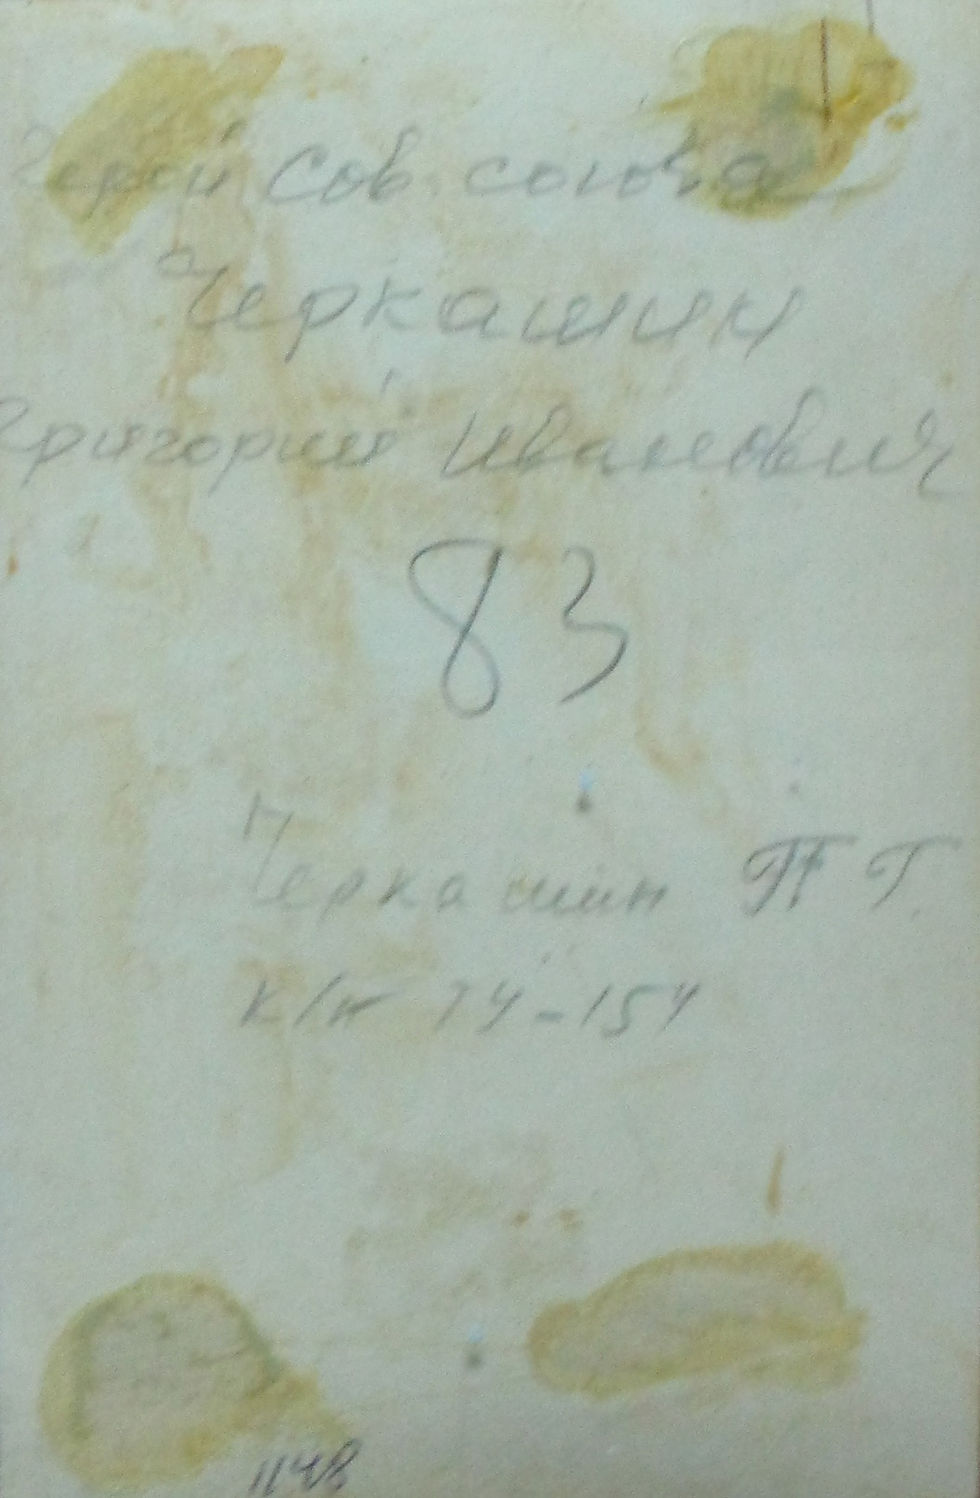 Герой Сов союза
Черкашин
Григорий Иванович
83
Черкашин Г.
к/п 74-154
1148